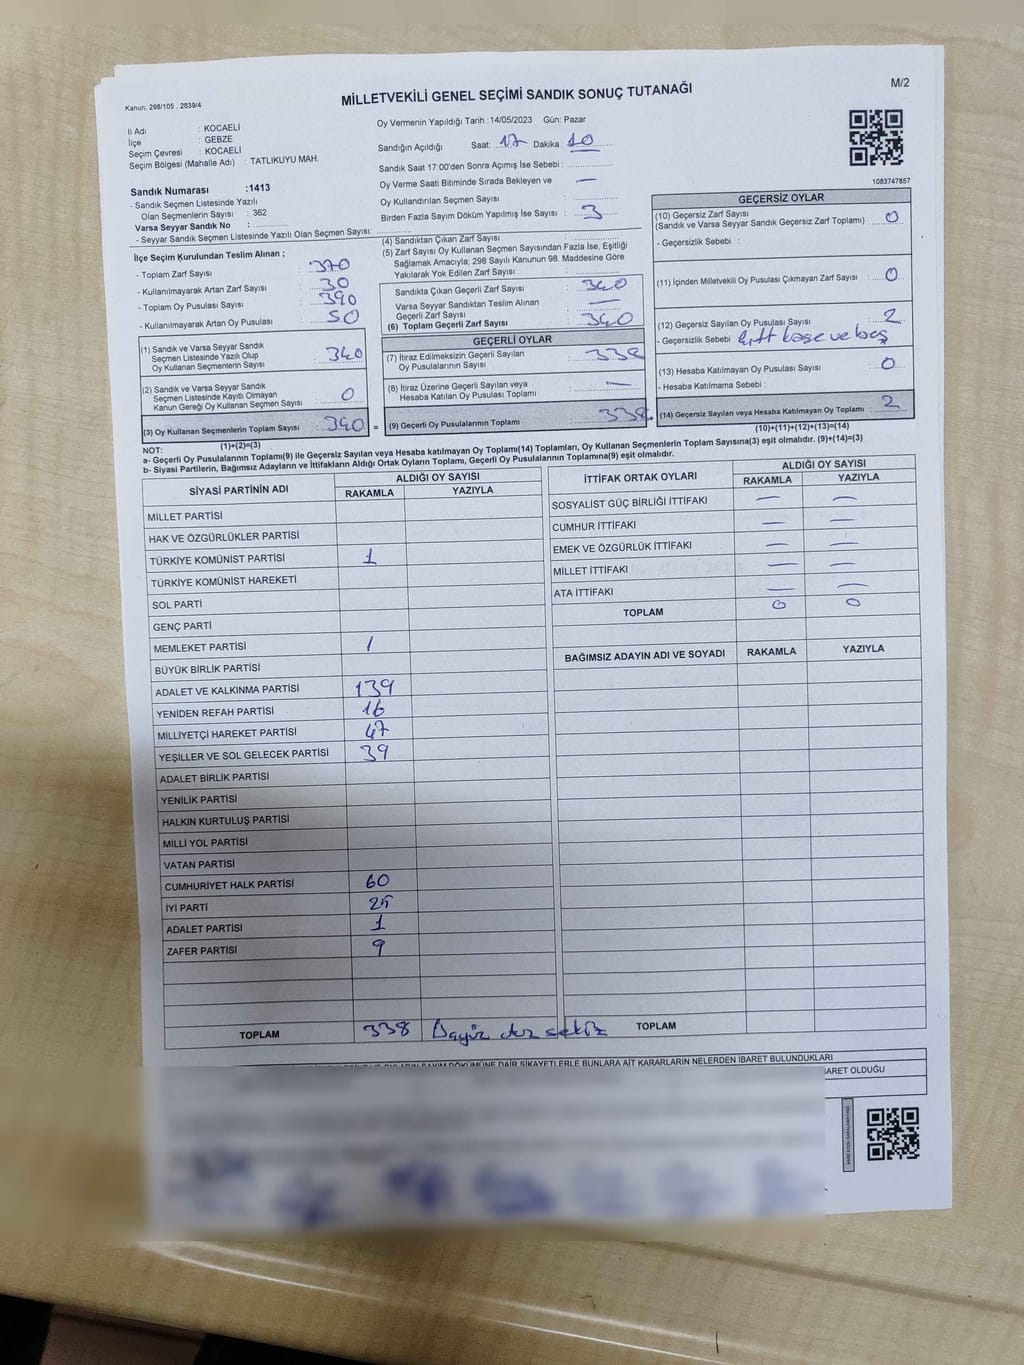 Kanun: 298/105 , 2839/4
MİLLETVEKİLİ GENEL SEÇİMİ SANDIK SONUÇ TUTANAĞI
M/2
İl Adı : KOCAELİ
İlçe : GEBZE
Seçim Çevresi : KOCAELİ
Seçim Bölgesi (Mahalle Adı) : TATLIKUYU MAH.
Sandık Numarası :1413
- Sandık Seçmen Listesinde Yazılı
Olan Seçmenlerin Sayısı : 362
Varsa Seyyar Sandık No :
- Seyyar Sandık Seçmen Listesinde Yazılı Olan Seçmen Sayısı:
Oy Vermenin Yapıldığı Tarih :14/05/2023 Gün: Pazar
Sandığın Açıldığı Saat: 17 Dakika: 10
Sandık Saat 17:00'den Sonra Açımış İse Sebebi :
Oy Verme Saati Bitiminde Sırada Bekleyen ve —
Oy Kullandırılan Seçmen Sayısı :
Birden Fazla Sayım Döküm Yapılmış İse Sayısı : 3
1083747857
İlçe Seçim Kurulundan Teslim Alınan ;
- Toplam Zarf Sayısı : 370
- Kullanılmayarak Artan Zarf Sayısı : 30
- Toplam Oy Pusulası Sayısı : 390
- Kullanılmayarak Artan Oy Pusulası : 50
(1) Sandık ve Varsa Seyyar Sandık
Seçmen Listesinde Yazılı Olup
Oy Kullanan Seçmenlerin Sayısı : 340
(2) Sandık ve Varsa Seyyar Sandık
Seçmen Listesinde Kayıtlı Olmayan
Kanun Gereği Oy Kullanan Seçmen Sayısı : 0
(3) Oy Kullanan Seçmenlerin Toplam Sayısı : 340 =
(1)+(2)=(3)
(4) Sandıktan Çıkan Zarf Sayısı :
(5) Zarf Sayısı Oy Kullanan Seçmen Sayısından Fazla İse, Eşitliği
Sağlamak Amacıyla; 298 Sayılı Kanunun 98. Maddesine Göre
Yakılarak Yok Edilen Zarf Sayısı :
Sandıkta Çıkan Geçerli Zarf Sayısı : 340
Varsa Seyyar Sandıktan Teslim Alınan
Geçerli Zarf Sayısı : —
(6) Toplam Geçerli Zarf Sayısı : 340
GEÇERLİ OYLAR
(7) İtiraz Edilmeksizin Geçerli Sayılan
Oy Pusulalarının Sayısı : 338
(8) İtiraz Üzerine Geçerli Sayılan veya
Hesaba Katılan Oy Pusulası Toplamı : —
(9) Geçerli Oy Pusulalarının Toplamı : 338
GEÇERSİZ OYLAR
(10) Geçersiz Zarf Sayısı
(Sandık ve Varsa Seyyar Sandık Geçersiz Zarf Toplamı) : 0
- Geçersizlik Sebebi :
(11) İçinden Milletvekili Oy Pusulası Çıkmayan Zarf Sayısı : 0
(12) Geçersiz Sayılan Oy Pusulası Sayısı : 2
- Geçersizlik Sebebi : çift kaşe ve boş
(13) Hesaba Katılmayan Oy Pusulası Sayısı : 0
- Hesaba Katılmama Sebebi :
(14) Geçersiz Sayılan veya Hesaba Katılmayan Oy Toplamı : 2
(10)+(11)+(12)+(13)=(14)
NOT:
a- Geçerli Oy Pusulalarının Toplamı(9) ile Geçersiz Sayılan veya Hesaba katılmayan Oy Toplamı(14) Toplamları, Oy Kullanan Seçmenlerin Toplam Sayısına(3) eşit olmalıdır. (9)+(14)=(3)
b- Siyasi Partilerin, Bağımsız Adayların ve İttifakların Aldığı Ortak Oyların Toplamı, Geçerli Oy Pusulalarının Toplamına(9) eşit olmalıdır.
SİYASİ PARTİNİN ADI ALDIĞI OY SAYISI
RAKAMLA YAZIYLA
MİLLET PARTİSİ
HAK VE ÖZGÜRLÜKLER PARTİSİ
TÜRKİYE KOMÜNİST PARTİSİ 1
TÜRKİYE KOMÜNİST HAREKETİ
SOL PARTİ
GENÇ PARTİ
MEMLEKET PARTİSİ 1
BÜYÜK BİRLİK PARTİSİ
ADALET VE KALKINMA PARTİSİ 139
YENİDEN REFAH PARTİSİ 16
MİLLİYETÇİ HAREKET PARTİSİ 47
YEŞİLLER VE SOL GELECEK PARTİSİ 39
ADALET BİRLİK PARTİSİ
YENİLİK PARTİSİ
HALKIN KURTULUŞ PARTİSİ
MİLLİ YOL PARTİSİ
VATAN PARTİSİ
CUMHURİYET HALK PARTİSİ 60
İYİ PARTİ 25
ADALET PARTİSİ 1
ZAFER PARTİSİ 9
TOPLAM 338 üçyüz otuz sekiz
İTTİFAK ORTAK OYLARI ALDIĞI OY SAYISI
RAKAMLA YAZIYLA
SOSYALİST GÜÇ BİRLİĞİ İTTİFAKI — —
CUMHUR İTTİFAKI — —
EMEK VE ÖZGÜRLÜK İTTİFAKI — —
MİLLET İTTİFAKI — —
ATA İTTİFAKI — —
TOPLAM 0 0
BAĞIMSIZ ADAYIN ADI VE SOYADI RAKAMLA YAZIYLA
TOPLAM
SAYIM DÖKÜMÜNE DAİR ŞİKAYETLERLE BUNLARA AİT KARARLARIN NELERDEN İBARET BULUNDUKLARI
İBARET OLDUĞU